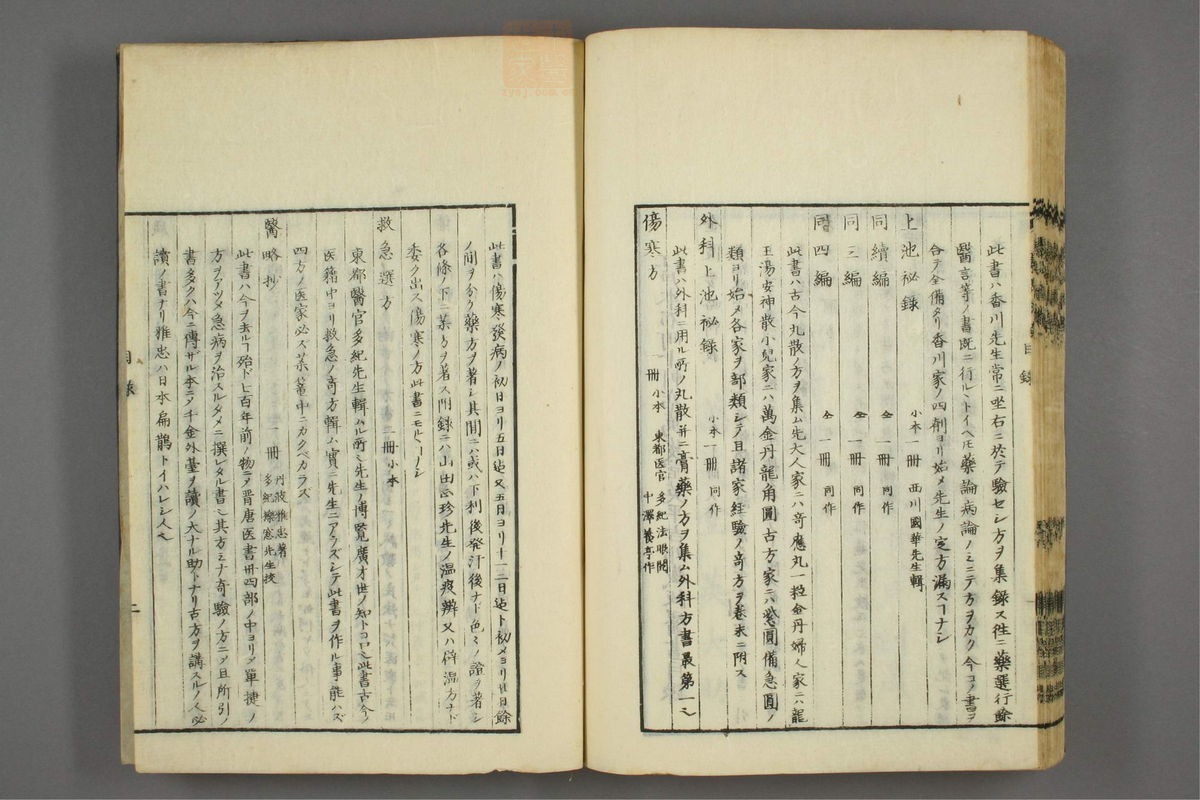 此書ハ香川先生常ニ坐右ニ於テ驗セシ方ヲ集錄ス徃ニ藥選行餘
醫言等ノ書既ニ行ル、トイヘ𪜈藥論病論ノミニテ方ヲカク今コノ書ヲ
合テ全備タリ香川家ノ四劑ヨリ始メ先生ノ定方漏スヿナシ
上池祕錄 小本一冊 西川國華先生輯
同續編 仝 一冊 同作
同三編 仝 一冊 同作
同四編 仝 一冊 同作
此書ハ古今丸散ノ方ヲ集ム先大人家ニハ奇應丸一粒金丹婦人家ニハ龍
王湯安神散小兒家ニハ萬金丹龍角圓古方家ニハ紫圓備急圓ノ
類ヨリ始メ各家ヲ部類シテ且諸家経驗ノ奇方ヲ巻末ニ附ス
外科上池祕錄 小本一冊 同作
此書ハ外科ニ用ル所ノ丸散并ニ膏藥ノ方ヲ集ム外科方書最第一ニ
傷寒方 一冊 小本 東都医官 多紀法眼閱
中澤養亭作
此書ハ傷寒發病ノ初日ヨリ五日迠又五月ヨリ十一二日迠ト初メヨリ廿日餘
ノ間ヲ分ク藥方ヲ著シ其間ニハ或ハ下利後発汗後ナド色ミノ證ヲ著シ
各條ノ下ニ某ㇳ方ヲ著ス附錄ニハ山田正珍先生ノ温疫辨又ハ僻温方ナド
委ク出ス傷寒ノ方此書ニモル、ナシ
救急選方 一冊 小本
東都醫官多紀先生輯ムル所ニ先生ノ博覧廣才世ノ知トコロニ此書古今ノ
医籍中ヨリ救急ノ奇方輯ム實ニ先生ニアラズシテ此書ヲ作ル事ニ能ハズ
四方ノ医家必ズ薬篭中ニカクベカラズ
醫略抄 一冊 丹波雅忠著
多紀櫟窓先生挍
此書ハ今ヲ去ルヿ殆ド七百年前ノ物ニメ晋唐医書卅四部ノ中ヨリメ單捷ノ
方ヲアツメ急病ヲ治スルタメニ撰レタル書ニ其方ミナ奇驗ノ方ニメ且所引ノ
書多クハ今ニ傳ザル本ニメ千金外臺ヲ讀ノ大ナル助トナリ古方ヲ講スルノ人必
讀ノ書ナリ雅忠ハ日本扁鵲トイハレシ人ヘ
目錄
二